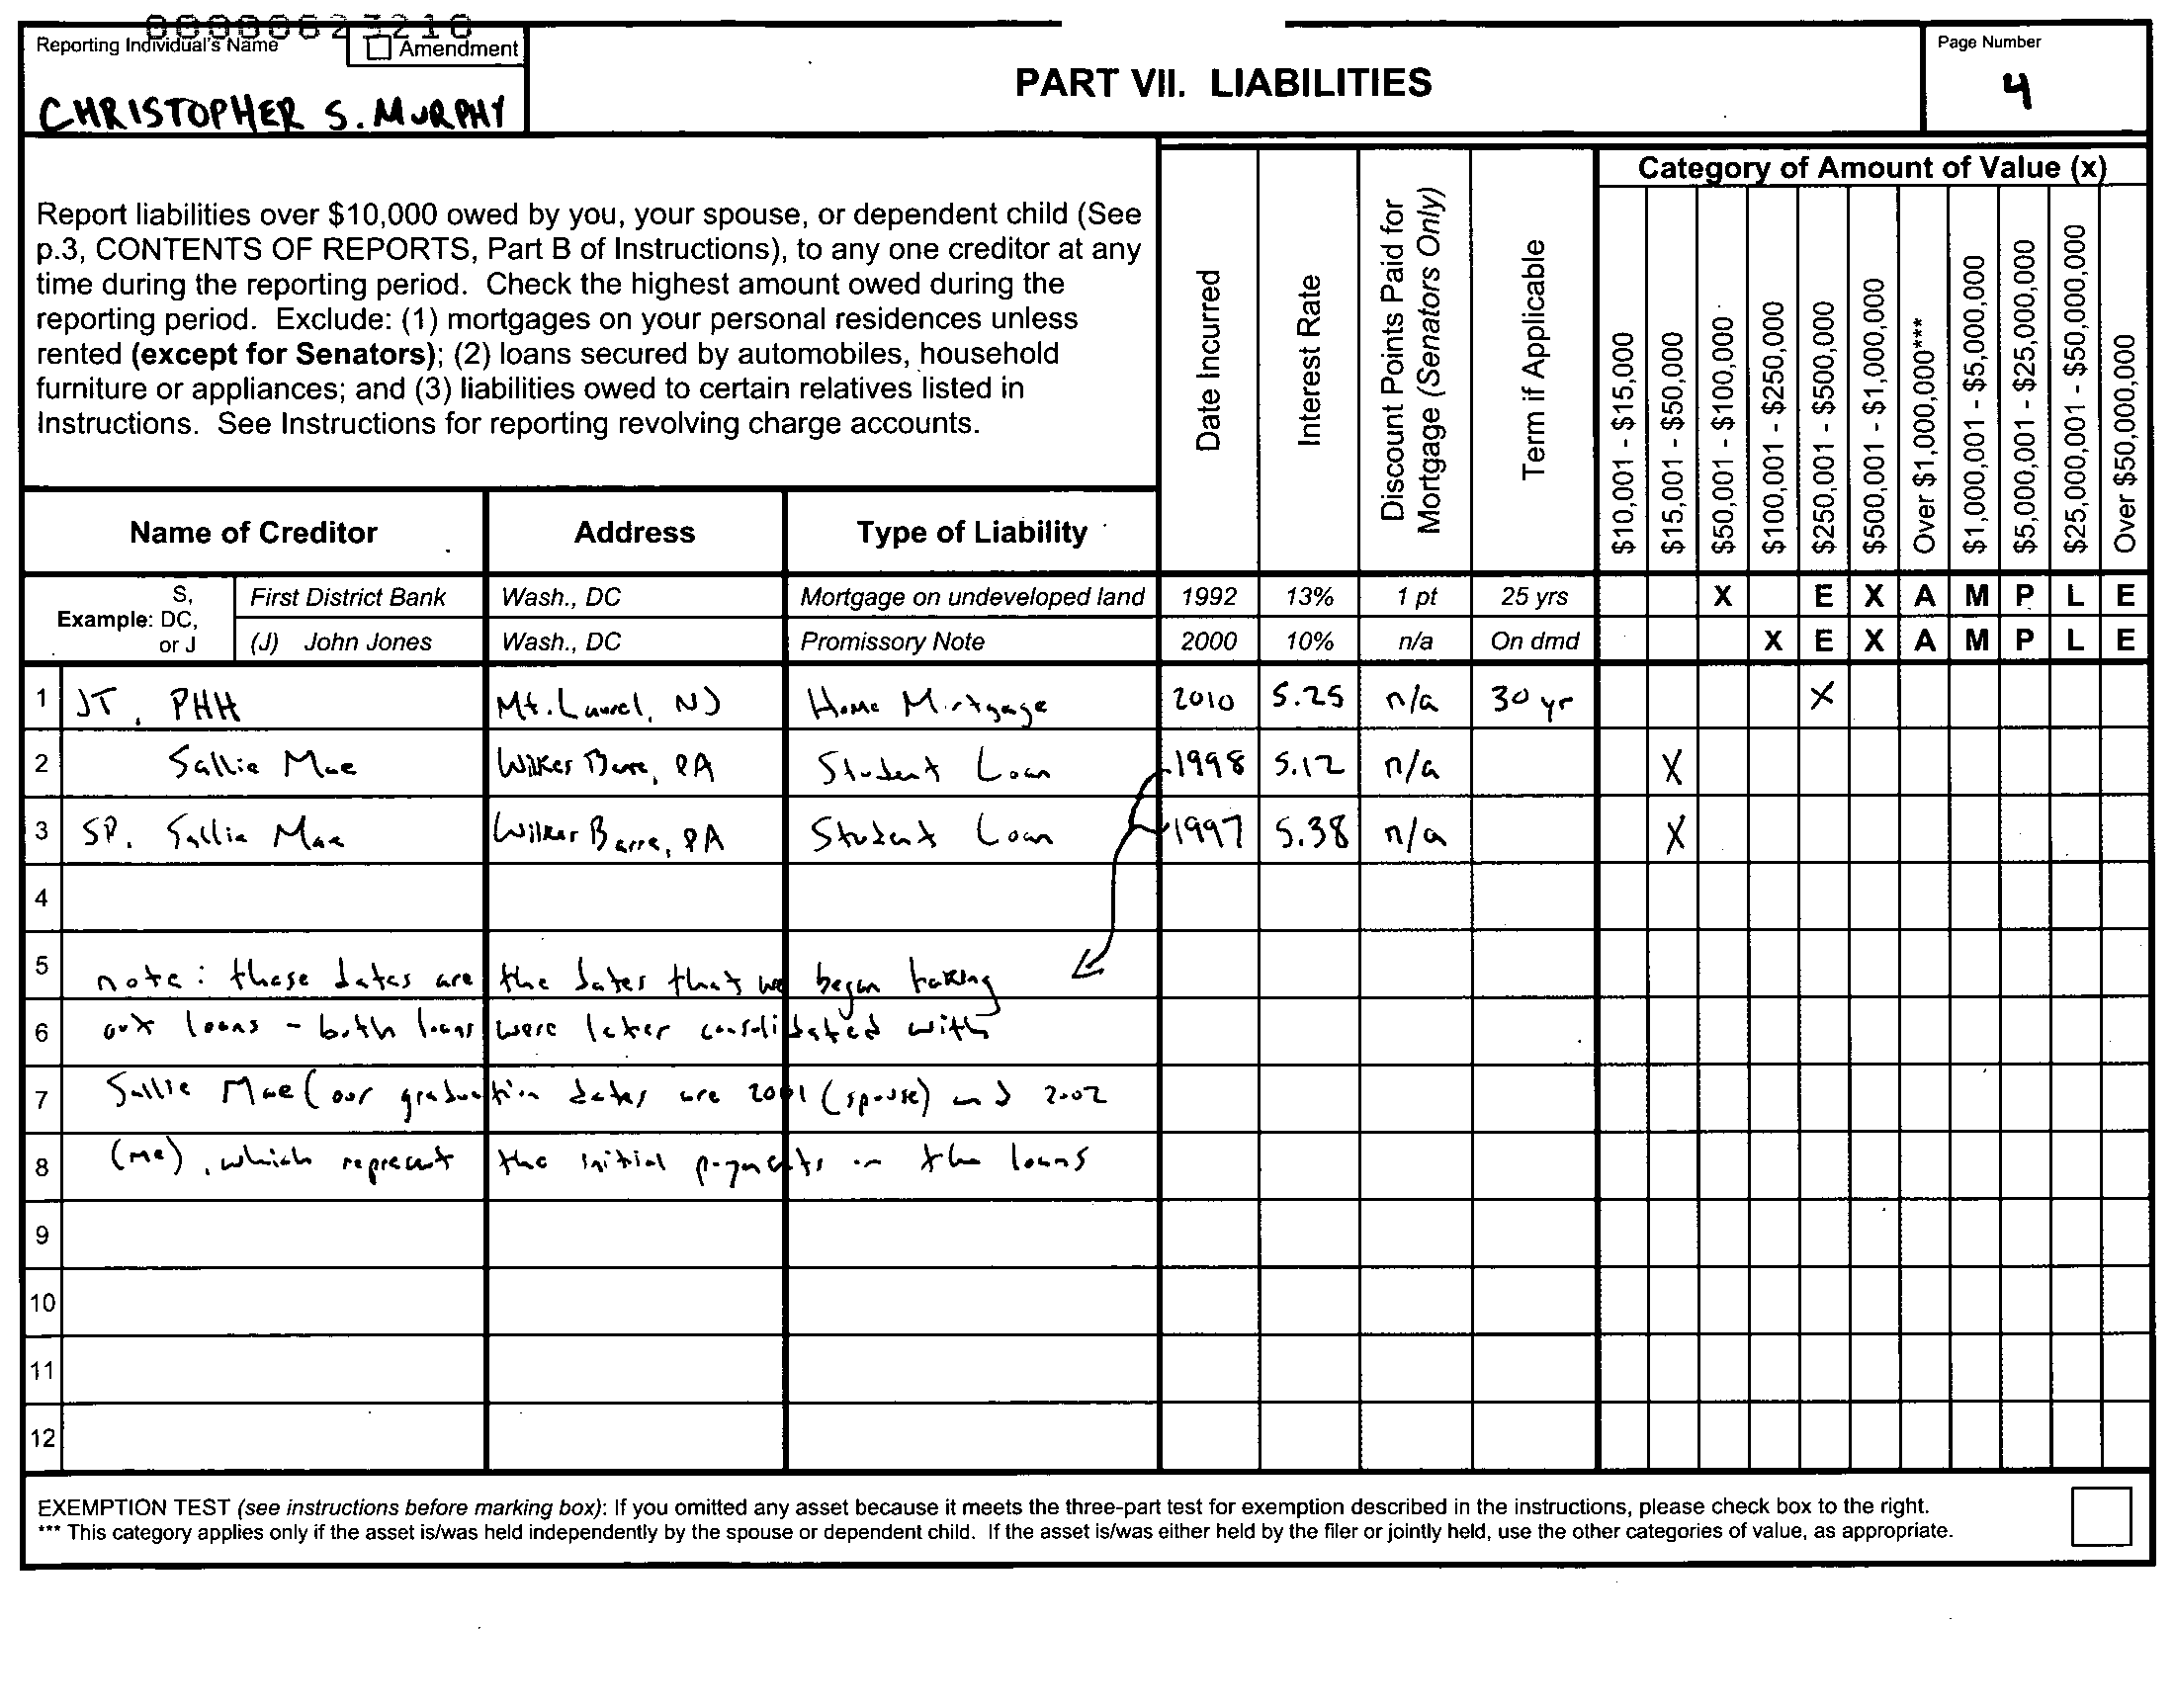 00000623216
Reporting Individual's Name
Amendment
CHRISTOPHER S. MURPHY
PART VII. LIABILITIES
Page Number
4
Report liabilities over $10,000 owed by you, your spouse, or dependent child (See
p.3, CONTENTS OF REPORTS, Part B of Instructions), to any one creditor at any
time during the reporting period. Check the highest amount owed during the
reporting period. Exclude: (1) mortgages on your personal residences unless
rented (except for Senators); (2) loans secured by automobiles, household
furniture or appliances; and (3) liabilities owed to certain relatives listed in
Instructions. See Instructions for reporting revolving charge accounts.
Date Incurred
Interest Rate
Discount Points Paid for
Mortgage (Senators Only)
Term if Applicable
Category of Amount of Value (x)
$10,001 - $15,000
$15,001 - $50,000
$50,001 - $100,000
$100,001 - $250,000
$250,001 - $500,000
$500,001 - $1,000,000
Over $1,000,000***
$1,000,001 - $5,000,000
$5,000,001 - $25,000,000
$25,000,001 - $50,000,000
Over $50,000,000
Name of Creditor Address Type of Liability
Example: S, DC, or J
First District Bank Wash., DC Mortgage on undeveloped land 1992 13% 1 pt 25 yrs X E X A M P L E
(J) John Jones Wash., DC Promissory Note 2000 10% n/a On dmd X E X A M P L E
1 JT, PHH Mt. Laurel, NJ Home Mortgage 2010 5.25 n/a 30 yr X
2 Sallie Mae Wilkes Barre, PA Student Loan 1998 5.12 n/a X
3 SP, Sallie Mae Wilkes Barre, PA Student Loan 1997 5.38 n/a X
4
5 note: these dates are the dates that we began taking
6 out loans - both loans were later consolidated with
7 Sallie Mae (our graduation dates are 2001 (spouse) and 2002
8 (me), which represent the initial payments on the loans
9
10
11
12
EXEMPTION TEST (see instructions before marking box): If you omitted any asset because it meets the three-part test for exemption described in the instructions, please check box to the right.
*** This category applies only if the asset is/was held independently by the spouse or dependent child. If the asset is/was either held by the filer or jointly held, use the other categories of value, as appropriate.